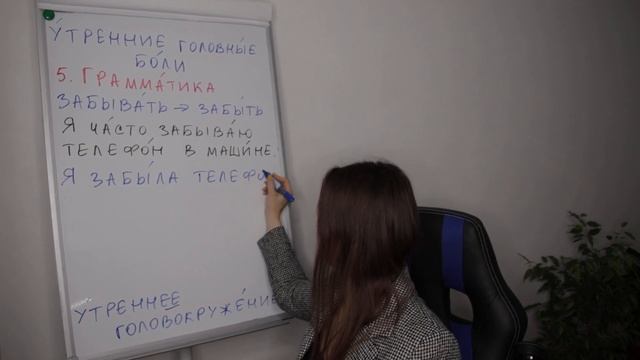 У́ТРЕННИЕ ГОЛОВНЫ́Е
БО́ЛИ
5. ГРАММА́ТИКА
ЗАБЫВА́ТЬ → ЗАБЫ́ТЬ
Я ЧА́СТО ЗАБЫВА́Ю
ТЕЛЕФО́Н В МАШИ́НЕ.
Я ЗАБЫ́ЛА ТЕЛЕФО
УТРЕННЕЕ
ГОЛОВОКРУЖЕ́НИЕ